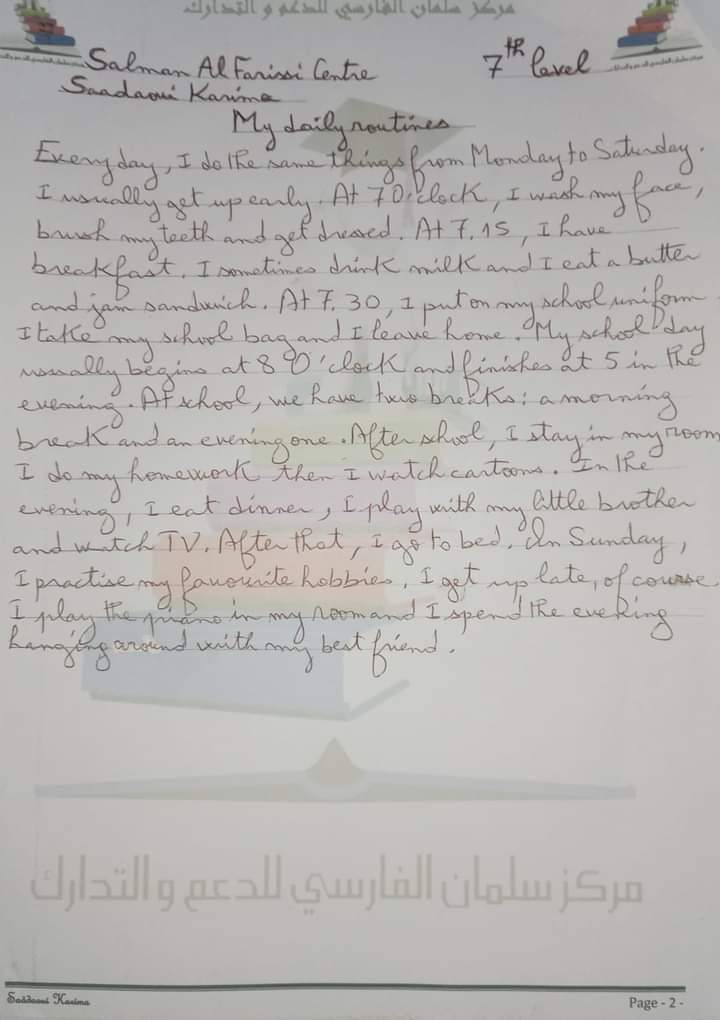 مركز سلمان الفارسي للدعم و التدارك
Salman Al Farissi Centre 7th level
Saadaoui Karima
My daily routines
Every day, I do the same things from Monday to Saturday.
I usually get up early. At 7 O'clock, I wash my face,
brush my teeth and get dressed. At 7.15, I have
breakfast. I sometimes drink milk and I eat a butter
and jam sandwich. At 7.30, I put on my school uniform
I take my school bag and I leave home. My school day
usually begins at 8 O'clock and finishes at 5 in the
evening. At school, we have two breaks: a morning
break and an evening one. After school, I stay in my room
I do my homework then I watch cartoons. In the
evening, I eat dinner, I play with my little brother
and watch TV. After that, I go to bed. On Sunday,
I practise my favourite hobbies. I get up late, of course.
I play the piano in my room and I spend the evening
hanging around with my best friend.
مركز سلمان الفارسي للدعم و التدارك
Saadaoui Karima Page - 2 -